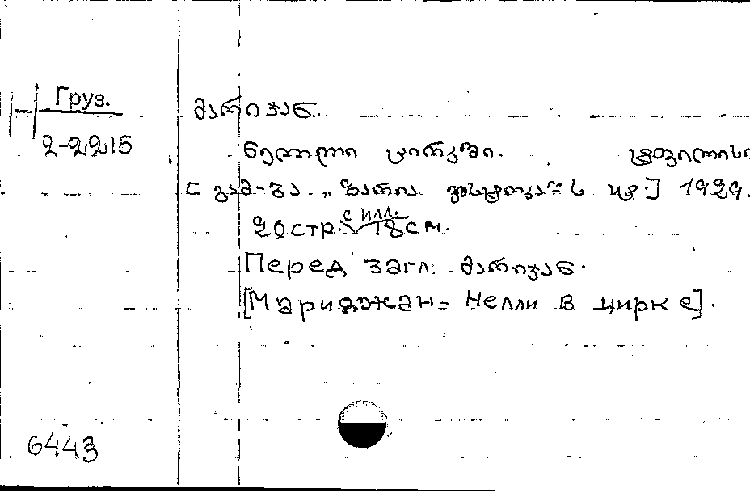 Груз.
2-2215
მარიჯან.
ნელლი ცირკში. ტფილისი
[გამ-ბა „ზარია ვოსტოკა"-ს ] 1929.
20 стр. с илл. 18 см.
Перед загл. მარიჯან.
[Мариджан = Нелли в цирке].
6443